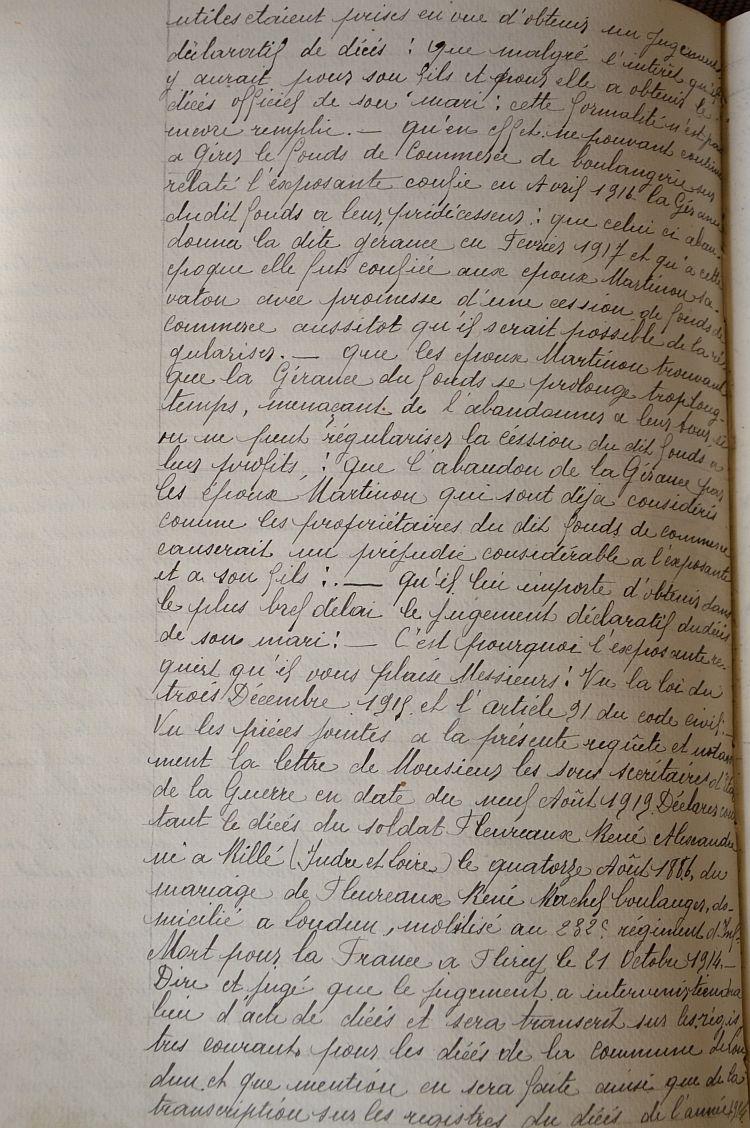 utiles étaient prises en vue d'obtenir un jugement
déclaratif de décès : que malgré l'intérêt qu'il
y aurait pour son fils et pour elle a obtenir le
décès officiel de son mari : cette formalité n'est pas
encore remplie. — qu'en effet ne pouvant continuer
a Gérer le fonds de Commerce de boulangerie sus
relaté l'exposante confie en Avril 1916 la Gérance
dudit fonds a leur prédécesseur : que celui ci aban-
donna la dite gérance en Février 1917 et qu'a cette
époque elle fut confiée aux époux Martinou sa-
vaton avec promesse d'une cession de fonds de
commerce aussitot qu'il serait possible de la ré-
gulariser. — que les époux Martinou trouvant
que la Gérance du fonds se prolonge trop long-
temps, menaçant de l'abandonner a leur tour, si
on ne peut régulariser la cession du dit fonds a
leur profits : que l'abandon de la Gérance par
les époux Martinou qui sont déja considérés
comme les propriétaires du dit fonds de commerce
causerait un préjudie considérable a l'exposante
et a son fils : — qu'il lui importe d'obtenir dans
le plus bref délai le jugement déclaratif du décès
de son mari : — C'est pourquoi l'exposante re-
quiert qu'il vous plaise Messieurs : Vu la loi du
trois Décembre 1915 et l'article 91 du code civil : —
Vu les pièces jointes a la présente requête et notam
ment la lettre de Monsieur les sous secrétaire d'Etat
de la Guerre en date du neuf Août 1919. Déclarer cons
tant le décès du soldat Fleureaux René Alexandre
né a Rillé (Indre et Loire) le quatorze Août 1886, du
mariage de Fleureaux René Rachel boulanger, do-
micilié a Loudun, mobilisé au 232e régiment d'Inf.
Mort pour la France a Flirey le 21 Octobre 1914. —
Dire et jugé que le jugement a intervenir tiendra
lieu d'acte de décès et sera transcrit sur les régis
tres courant, pour les décès de la commune de Lou
dun. et que mention en sera faite ainsi que de la
transcription sur les registres du décès de l'année 1914